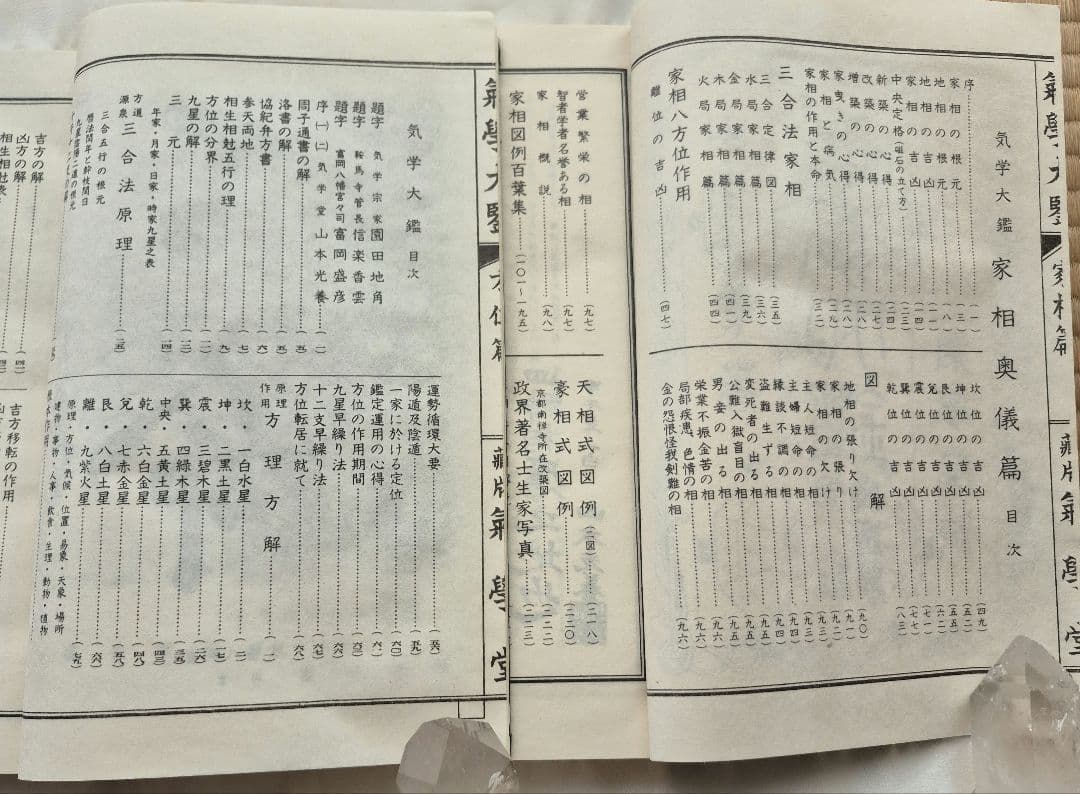 気学大鑑 家相奥儀篇 目次
序……(一)
家相の根元……(三)
地相の根元……(八)
地相の吉凶……(一一)
家相の吉凶……(一四)
中央定格(磁石の立て方)……(二三)
新築の心得……(二四)
改築の心得……(二七)
増築の心得……(二八)
家曳きの心得……(二八)
家相と病気……(二九)
家相の作用と本命……(三二)
三合法家相
三合定律図……(三五)
水局家相篇……(三六)
金局家相篇……(三九)
木局家相篇……(四一)
火局家相篇……(四四)
家相八方位作用
離位の吉凶……(四七)
坎位の吉凶……(四九)
坤位の吉凶……(五二)
震位の吉凶……(五五)
艮位の吉凶……
兌位の吉凶……(七一)
巽位の吉凶……(七七)
乾位の吉凶……(八三)
図解
地相の張り欠け……(九〇)
家相の張り……(九二)
家相の欠け……(九三)
主人短命の相……(九四)
主婦短命の相……(九四)
縁談不調の相……(九四)
盗難生ずる相……(九五)
変死者の出る相……(九五)
公難入獄盲目の相……(九五)
男妾の出る相……(九六)
栄業不振金苦の相……(九六)
局部疾患、色情の相……(九六)
金の怨恨怪我剣難の相……(九六)
氣學大鑒
家相篇
蔵版氣學堂
営業繁栄の相……(九七)
智者学者名誉ある相……(九七)
家相概説……(九八)
家相図例百葉集……(一〇一~一九五)
天相式図例(二図)……(二一八)
豪相式図例……(二二〇)
京都南禅寺所在改築図……(二二二)
政界著名士生家写真……(二二三)
氣學大鑒
方位篇
蔵版氣學堂
気学大鑑 目次
題字 気学宗家 園田地角
題字 鞍馬寺管長 信楽香雲
題字 富岡八幡宮々司 富岡盛彦
序(一)(二) 気学堂 山本光養……(一)
周子通書の解……(五)
洛書の解……(五)
協紀弁方書……(六)
参天両地……(七)
相生相尅五行の理……(九)
方位の分界……(一二)
九星の解……(一三)
三元……(一四)
年家・月家・日家・時家九星之表
方道源泉 三合法原理……(二五)
三合五行の根元
暦法閏年と幹枝閏日
運勢循環大要……(五六)
陽遁及陰遁……(五九)
一家に於ける定位……(六〇)
鑑定運用の心得……(六一)
方位の作用期間……(六三)
九星早繰り法……(六六)
十二支早繰り法……(六七)
方位転居に就て……(六八)
原理作用 方理方解……(一)
坎・一白水星……(二)
坤・二黒土星……
震・三碧木星……(二六)
巽・四緑木星……(三五)
中央・五黄土星……(四三)
乾・六白金星……(四八)
兌・七赤金星……(五八)
艮・八白土星……(六八)
離・九紫火星……(七九)
原理・方位・気候・位置・易象・天象・場所
建物・事物・人事・飲食・生理・動物・植物
吉方の解
凶方の解
相生相尅表
吉方移転の作用